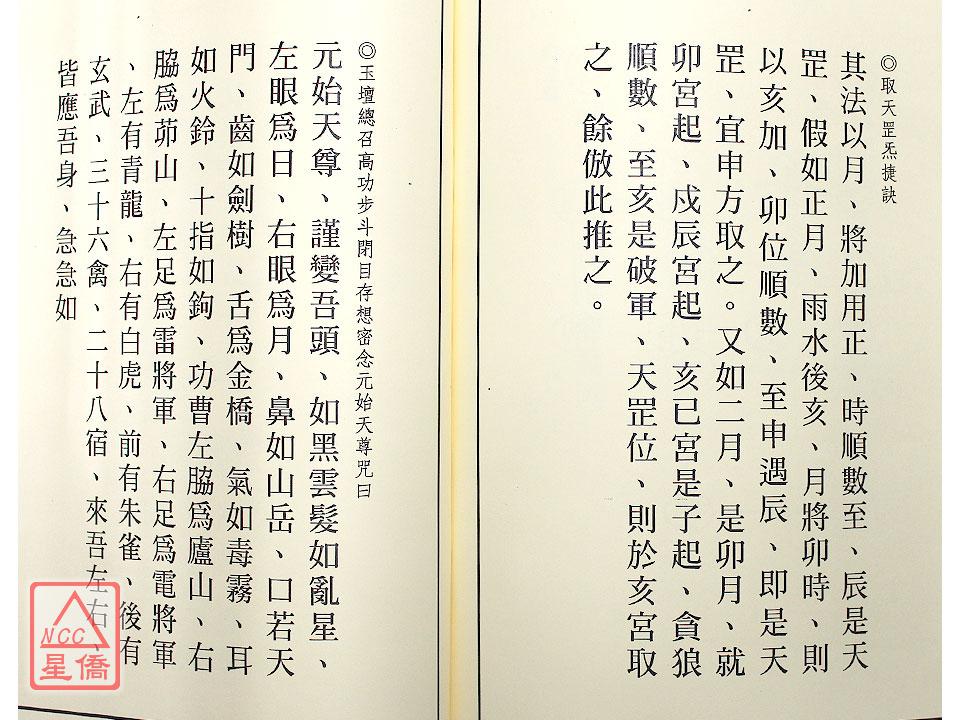 ◎取天罡炁捷訣
其法以月、將加用正、時順數至、辰是天
罡、假如正月、雨水後亥、月將卯時、則
以亥加、卯位順數、至申遇辰、即是天
罡、宜申方取之。又如二月、是卯月、就
卯宮起、戍辰宮起、亥巳宮是子起、貪狼
順數、至亥是破軍、天罡位、則於亥宮取
之、餘倣此推之。
◎玉壇總召高功步斗閉目存想密念元始天尊咒曰
元始天尊、謹變吾頭、如黑雲髮如亂星、
左眼爲日、右眼爲月、鼻如山岳、口若天
門、齒如劍樹、舌爲金橋、氣如毒霧、耳
如火鈴、十指如鉤、功曹左脇爲廬山、右
脇爲茆山、左足爲雷將軍、右足爲電將軍
、左有青龍、右有白虎、前有朱雀、後有
玄武、三十六禽、二十八宿、來吾左右、
皆應吾身、急急如
NCC
星僑